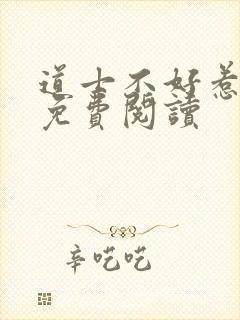 道士不好惹
免費閱讀
辛吃吃